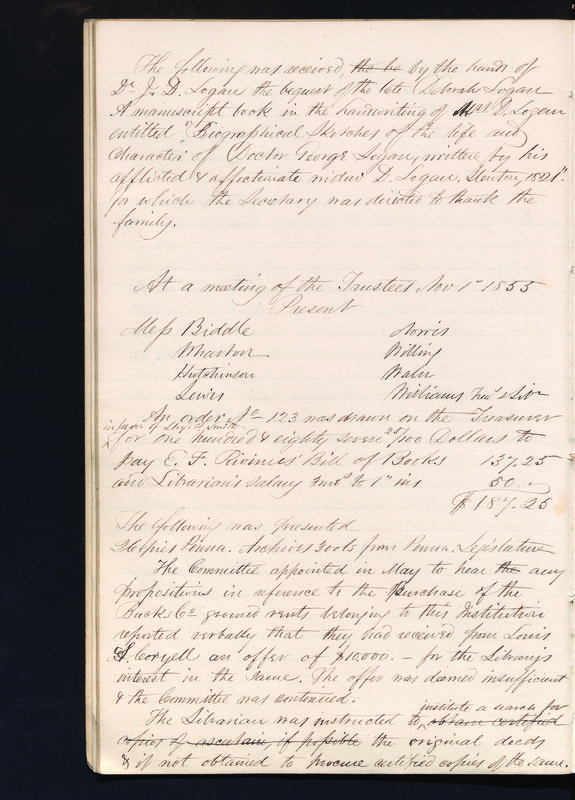 The following was received, the be by the hands of
Dr J. D. Logan the bequest of the late Deborah Logan
A manuscript book in the handwriting of Mrs D. Logan
entitled "Biographical Sketches of the life and
Character" of Doctor George Logan, written by his
afflicted & affectionate widow D. Logan. Stenton, 1821".
for which the Secretary was directed to thank the
family.
At a meeting of the Trustees Nov 1st 1855
Present
Mess Biddle Norris
Wharton Willing
Hutchinson Waln
Lewis Williams Trea & Libn
An order No 123 was drawn on the Treasurer
in favor of Lloyd P. Smith
for One hundred & eighty seven 25/100 Dollars to
pay E. F. Rivinus' Bill of Books 137.25
and Librarian's Salary 3 mos to 1st ins 50.
$187.25
The following was presented
2 Copies Penna. Archives 3 vols from Penna. Legislature
The Committee appointed in May to hear the any
propositions in reference to the purchase of the
Bucks Co ground rents belonging to this Institution
reported verbally that they had received from Louis
S. Coryell an offer of $10000. – for the Library's
interest in the same. The offer was deemed insufficient
& the Committee was continued.
institute a search for
The Librarian was instructed to obtain certified
copies of ascertain, if possible the original deeds
& if not obtained to procure certified copies of the same.